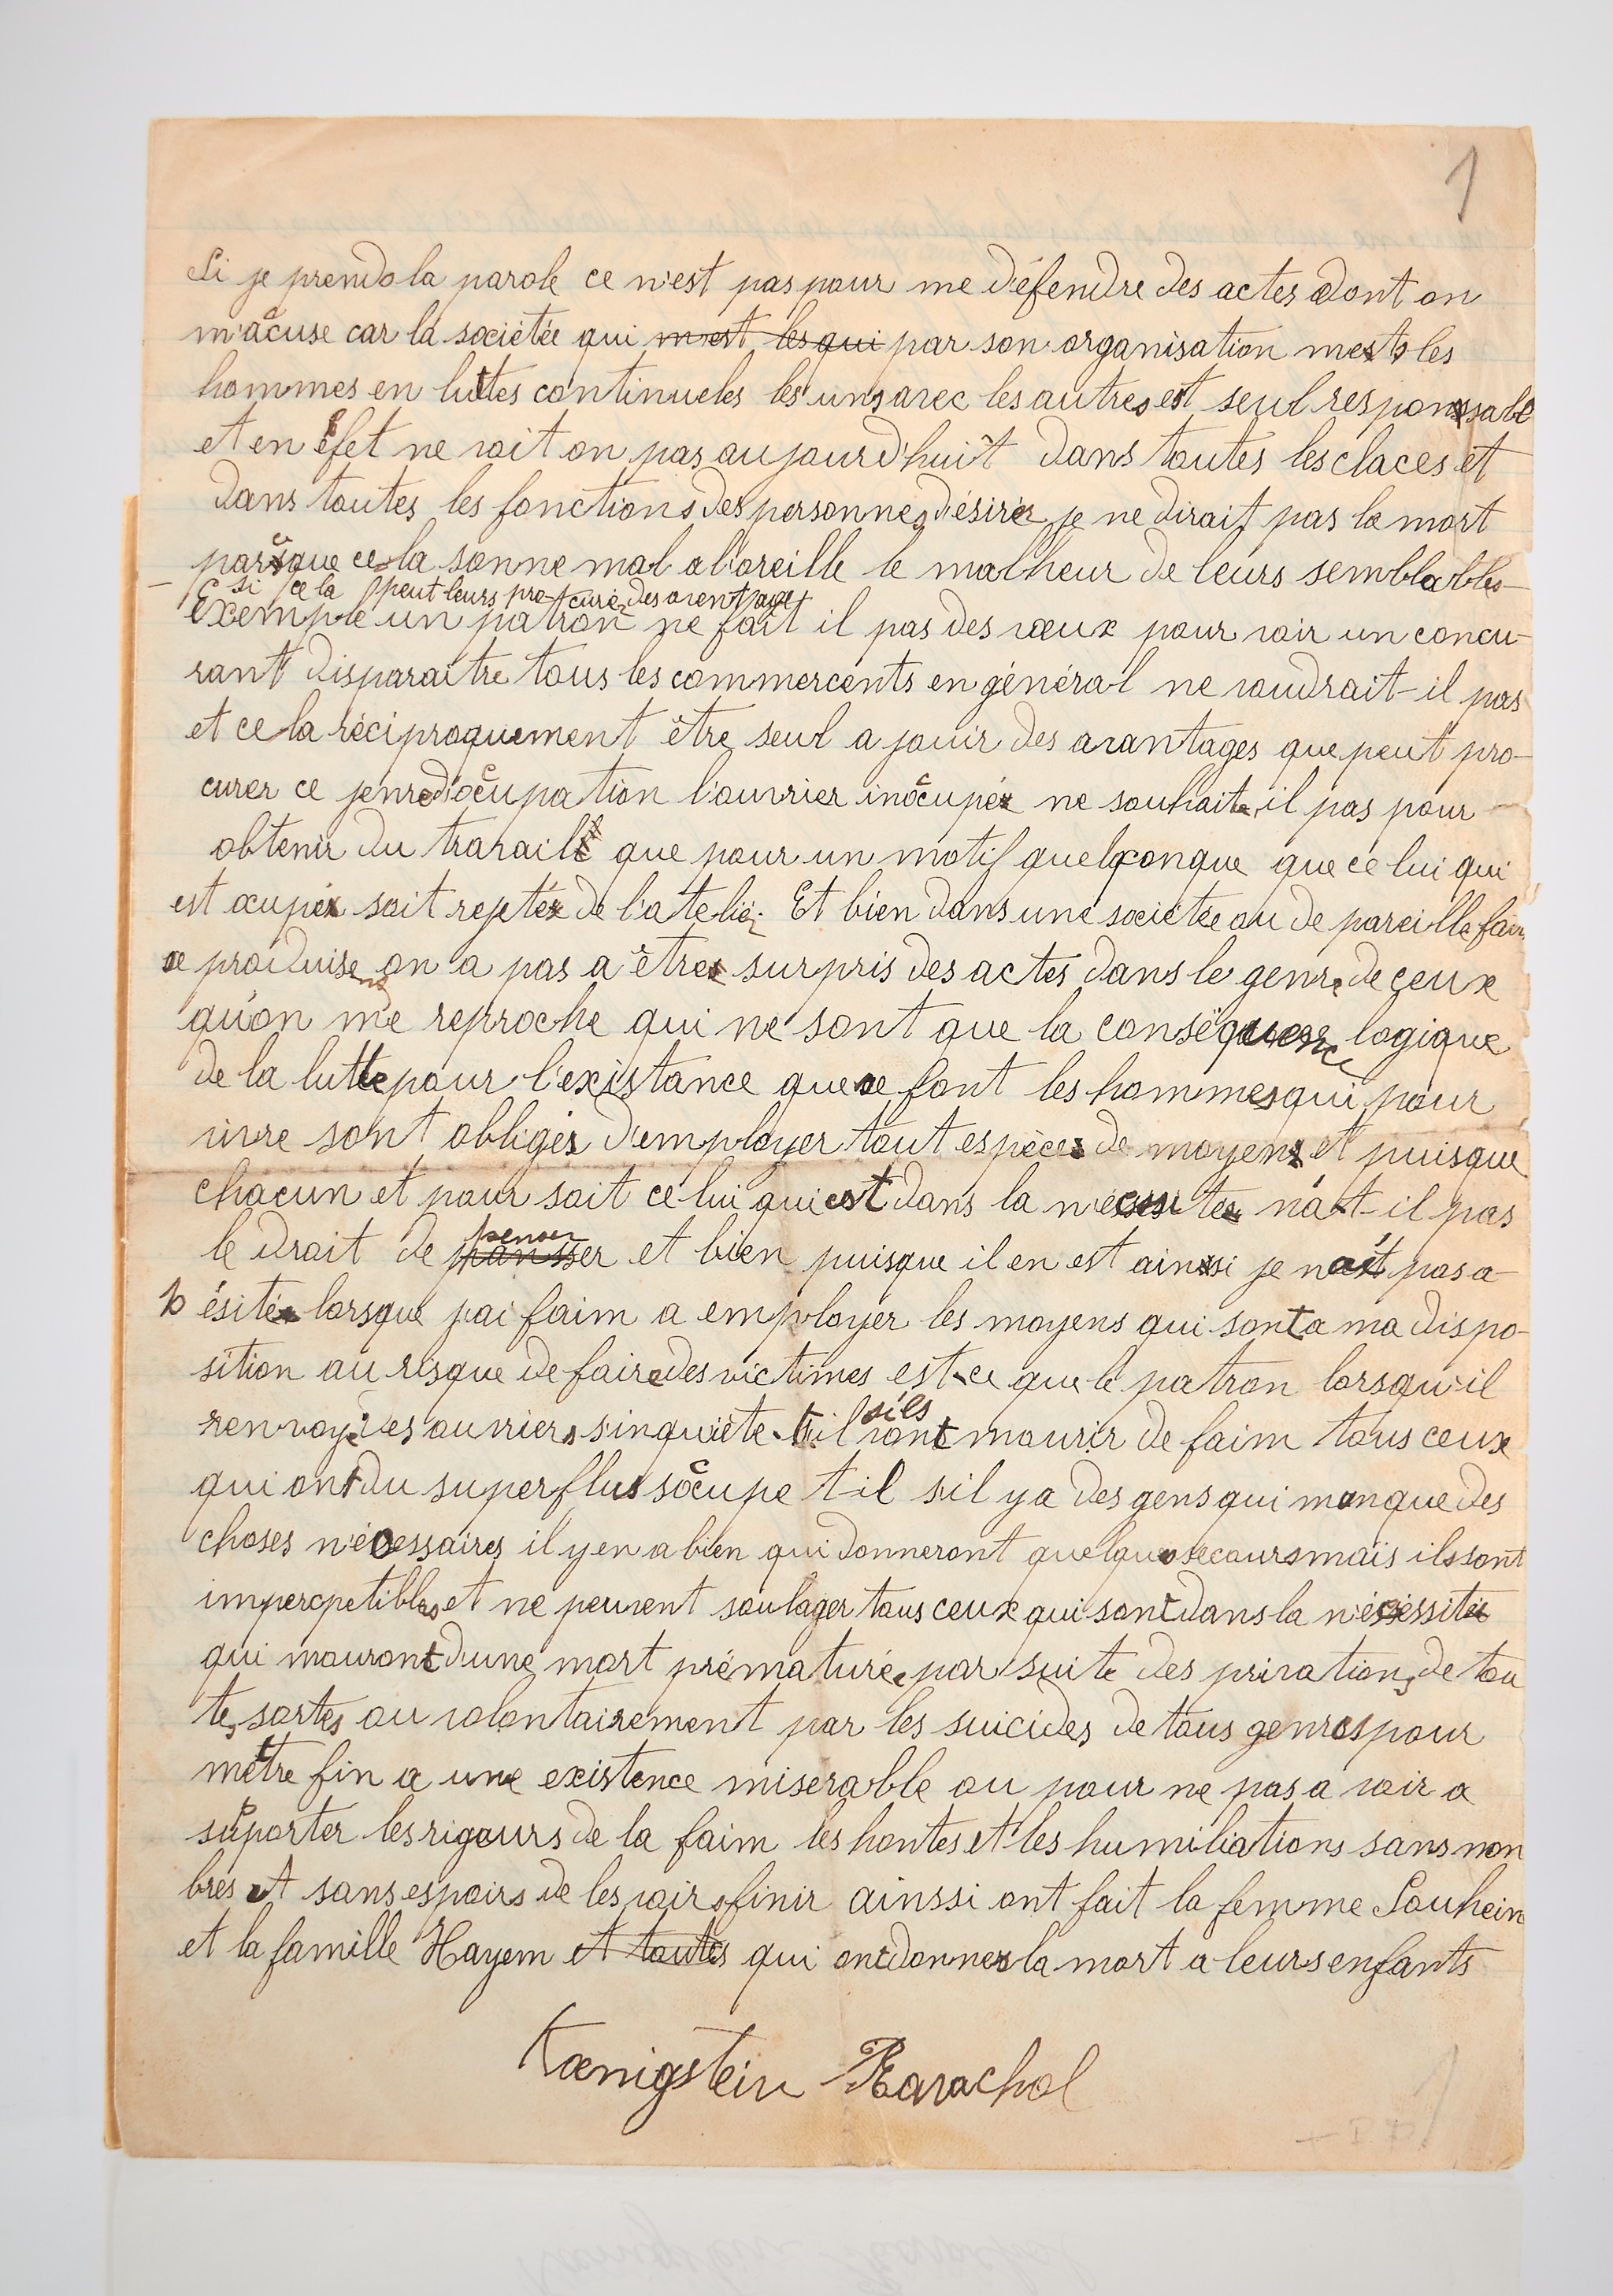 1
Si je prends la parole ce n'est pas pour me défendre des actes dont on
m'accuse car la sociétée qui m'est les qui par son organisation mets les
hommes en luttes continueles les uns avec les autres est seul responssable
et en effet ne voit on pas aujourd'huit dans toutes les claces et
dans toutes les fonctions des personnes désirér je ne dirait pas la mort
parceque cela sonne mal a l'oreille le malheur de leurs semblables
si cela peut leurs procurér des aventage
exemple un patron ne fait il pas des vœux pour voir un concu-
rant disparaitre tous les commercents en général ne voudrait-il pas
et cela réciproquement être seul a jouir des avantages que peut pro-
curer ce jenre d'occupation l'ouvrier inoccupér ne souhaite il pas pour
obtenir du travaill que pour un motif quelqconque que celui qui
est ocupér soit rejetér de l'ateliér. Et bien dans une sociétée ou de pareille faits
se produisent on a pas a êtres surpris des actes dans le genre de ceux
qu'on me reproche qui ne sont que la conséquence logique
de la lutte pour l'existance que se font les hommes qui pour
vivre sont obligés d'employer tout espèces de moyens et puisque
chacun et pour soit celui qui est dans la nécessitée n'at-il pas
penser
le droit de pansser et bien puisque il en est ainssi je n'ait pas a
h ésitér lorsque j'ai faim a employer les moyens qui sont a ma dispo-
sition au risque de faire des victimes est-ce que le patron lorsqu'il
renvoye des ouvriers s'inquiète t'il s'ils vont mourir de faim tous ceux
qui ont du superflus s'occupe t-il s'il y a des gens qui manque des
choses nécessaires il y en a bien qui donneront quelques secours mais ils sont
impercpetibles et ne peuvent soulager tous ceux qui sont dans la nécéssitée
qui mouront d'une mort prématurée par suite des privations de tou
tes sortes ou volontairement par les suicides de tous genres pour
mettre fin a une existence miserable ou pour ne pas a voir a
suporter les rigours de la faim les hontes et les humiliations sans nom
bres et sans espoirs de les voir finir ainssi ont fait la femme Souhein
et la famille Hayem et toutes qui ont donner la mort a leurs enfants
Kœnigstein Ravachol